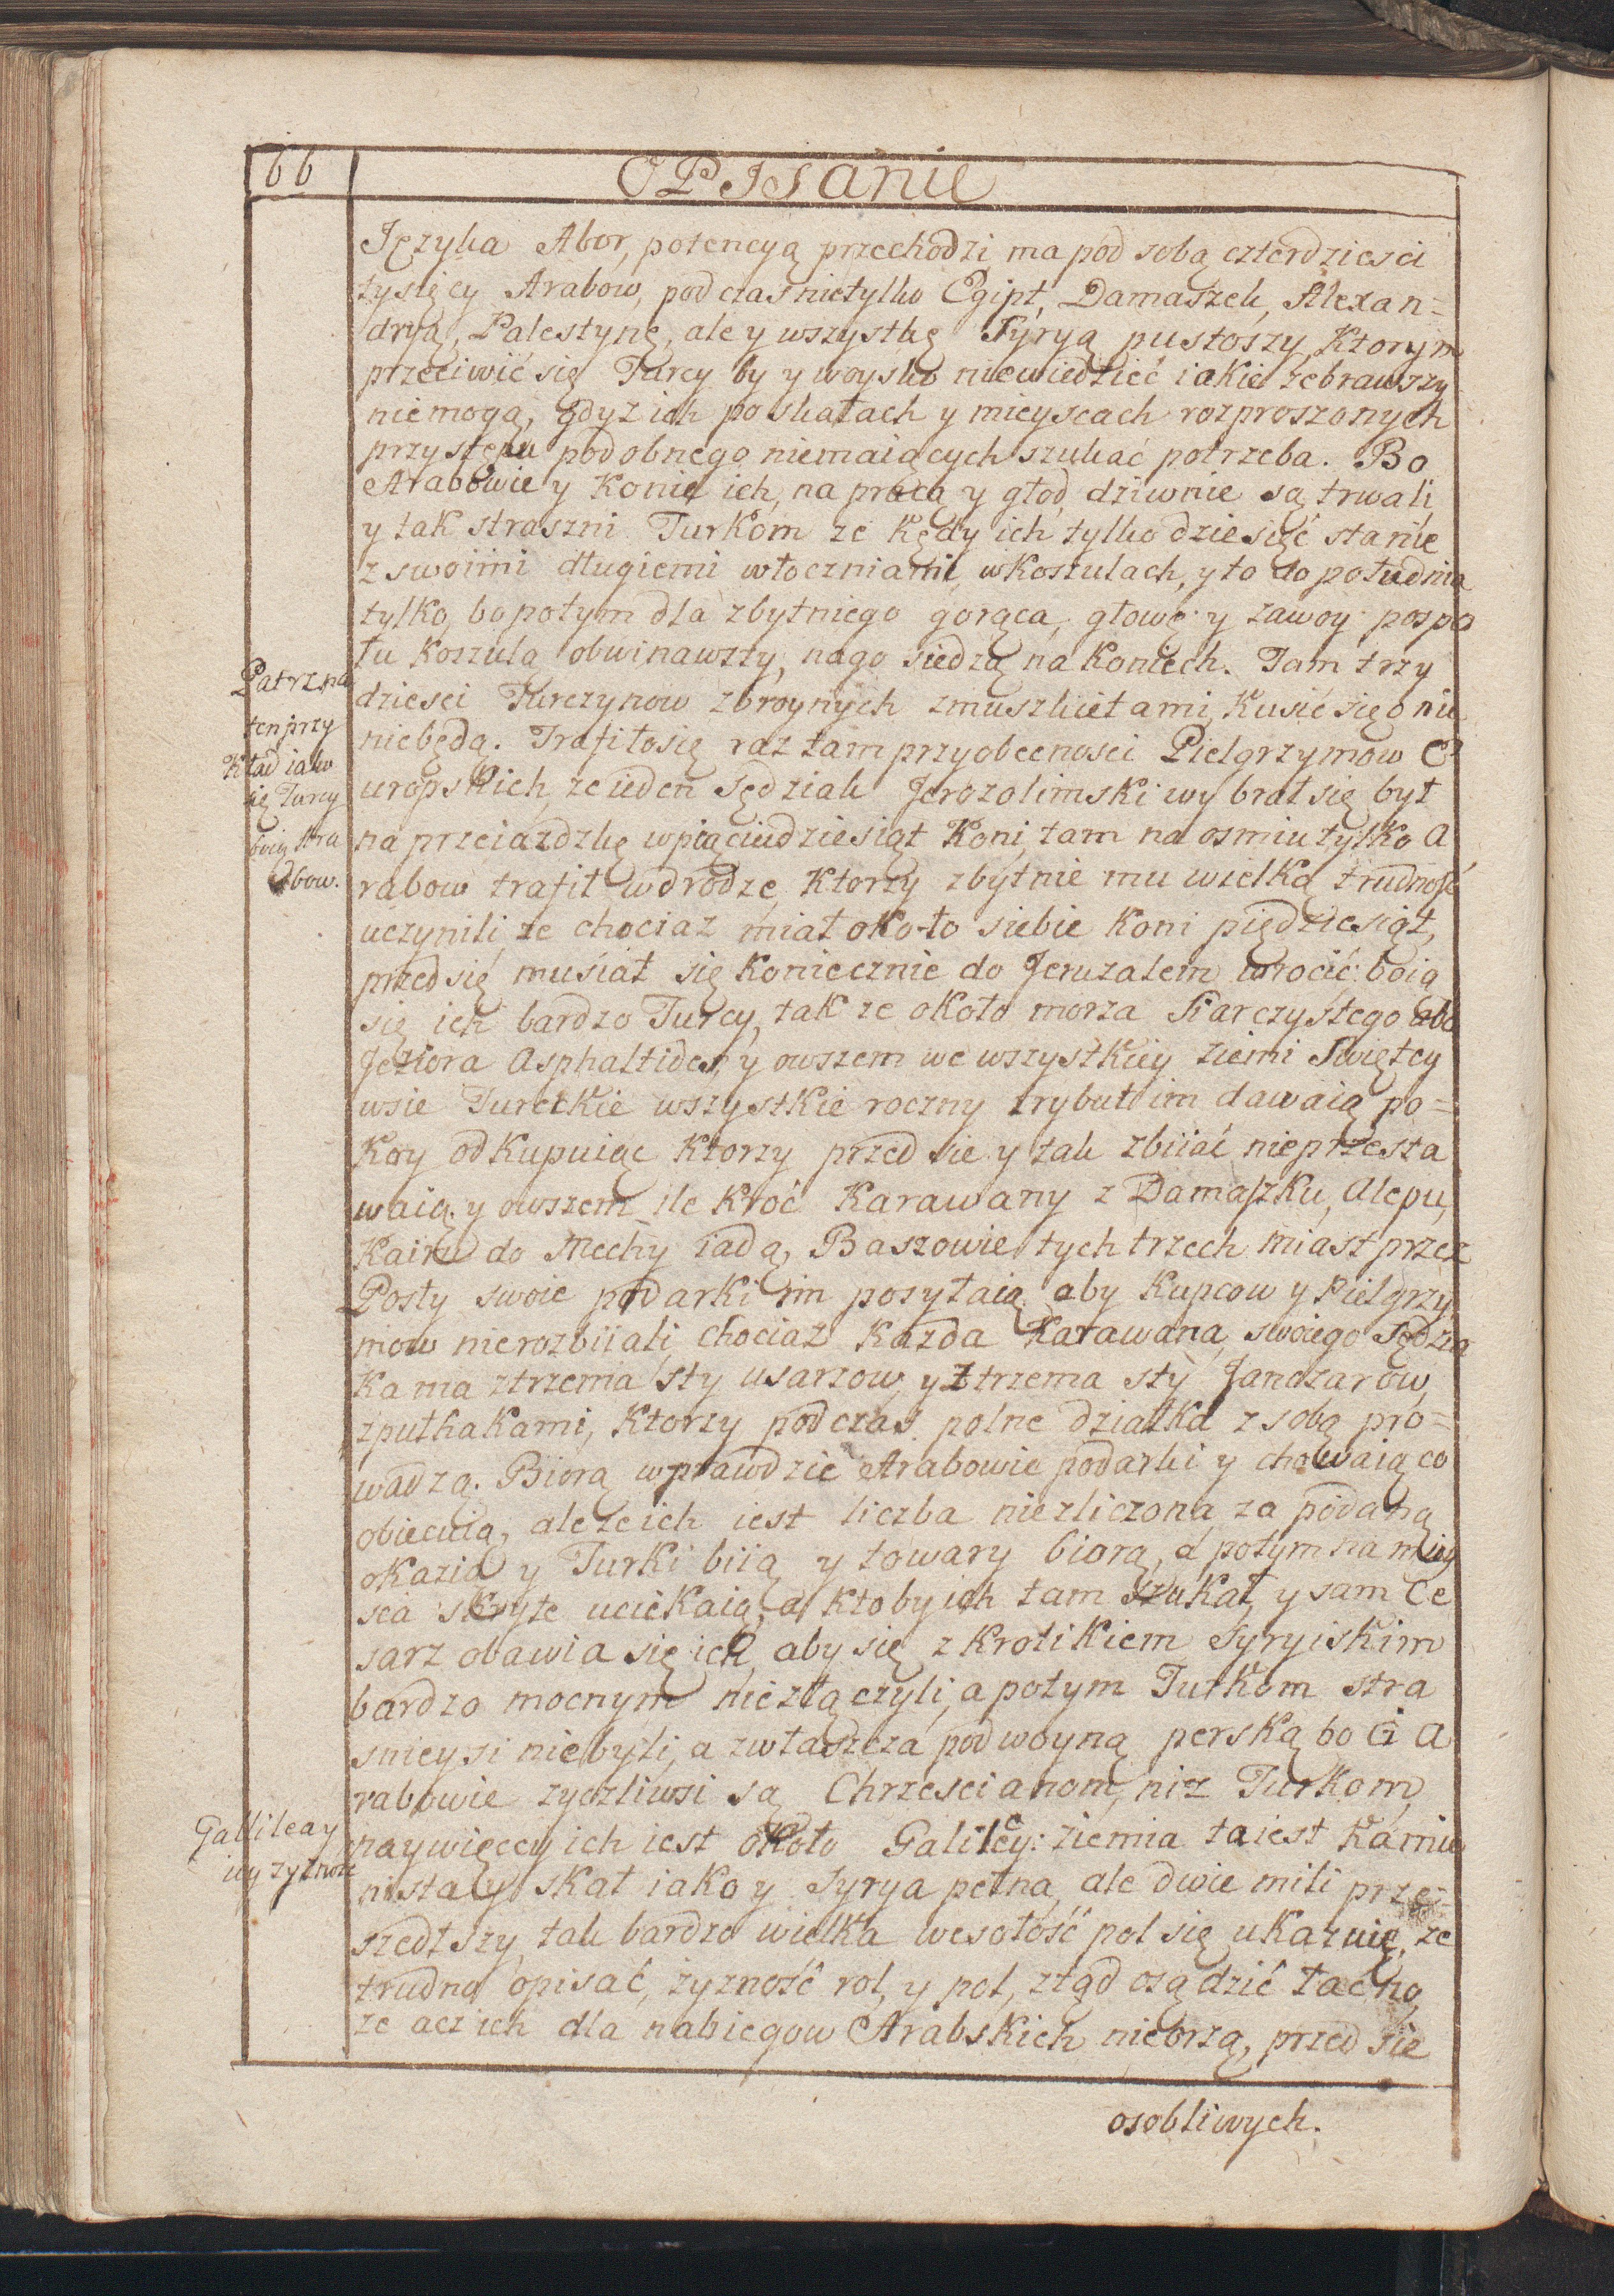 66
OPISanie
Języka Abor, potencyą przechodzi ma pod sobą czterdziesci
tysięcy Arabow, podczas nietylko Egipt, Damaszek, Alexan=
dryą, Palestynę, ale y wszystkę Syryą pustoszy, Ktorym
przeciwić się Turcy by y woysko niewiedzieć iakie zebrawszy
niemogą, gdyz ich po skałach y mieyscach rozproszonych
przystępu podobnego niemaiących szukać potrzeba. Bo
Arabowie y Konie ich, na pracą y głod, dziwnie są trwali,
y tak straszni Turkom ze Kędy ich tylko dziesięć stanie
z swoimi długiemi włoczniami, w Koszulach, y to do południa
tylko, bo potym dla zbytniego gorąca, głowę y zawoy pospo
łu Koszulą obwinawszy, nago siedzą na Koniech. Tam trzy
dziesci Turczynow zbroynych zmuszkietami Kusić się o nie
niebędą. Trafiłosię raz tam przyobecnosci Pielgrzymow E
uropskich, ze ieden Sędziak Jerozolimski wybrał się był
na przeiazdzkę w piąciudziesiąt Koni, tam na osmiu tylko A
rabow trafił w drodze, Ktorzy zbytnie mu wielką trudność
uczynili, ze chociaz miał około siebie Koni piędziesiąt,
przed się musiał się Koniecznie do Jeruzalem wrocić: boią
się ich bardzo Turcy, tak ze około morza Siarczystego abo
Jeziora Asphaltides, y owszem we wszystkiey ziemi Swiętey
wsie Tureckie wszystkie roczny trybut im dawaią po=
Koy odkupuiąc Ktorzy przed sie y tak zbiiać nieprzesta
waią. y owszem ile Kroć Karawany z Damaszku, Alepu,
Kairu do Mechy iadą, Baszowie tych trzech miast przez
Posły swoie podarki im posyłaią aby Kupcow y Pielgrzy
mow nierozbiiali, chociaz Kazda Karawana, swoiego Sędzia
Ka ma ztrzema sty usarzow, y z trzema sty Janczarow,
z pułhakami, Ktorzy podczas polne działka z sobą pro=
wadzą. Biorą wprawdzie Arabowie podarki y chowaią co
obiecuią, ale ze ich iest liczba niezliczona, za podaną
okazią y Turki biią y towary biorą, a potym na miey
sca skryte uciekaią, a kto by ich tam szukał, y sam Ce
sarz obawia się ich, aby się z Krolikiem Syryiskim
bardzo mocnym niezłączyli, a potym Turkom stra
snieysi niebyli, a zwłaszcza pod woyną perską bo Ci A
rabowie zyczliwsi są Chrzescianom, niz Turkom,
naywięcey ich iest około Galiley: ziemia ta iest Kamie
nista, y skał iako y Syrya pełna, ale dwie mili prze=
szedłszy, tak bardzo wielka wesołość pol się ukazuię, ze
trudno opisać, żyzność rol, y pol, ztąd osądzić łacno,
ze acz ich dla nabiegow Arabskich nieorzą, przed sie
osobliwych.
Patrz na
ten przy
Kład iako
się Turcy
boią Ara
bow.
Gallilea y
iey zyzność